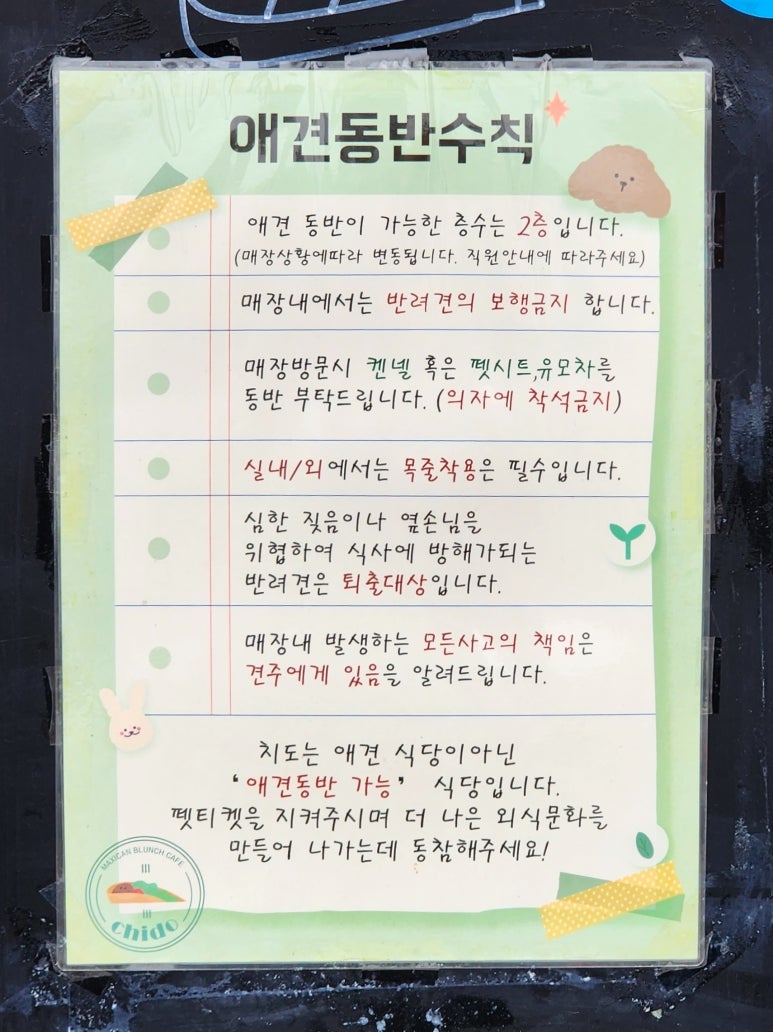 애견동반수칙
애견 동반이 가능한 층수는 2층입니다.
(매장상황에따라 변동됩니다. 직원안내에 따라주세요)
매장내에서는 반려견의 보행금지 합니다.
매장방문시 켄넬 혹은 펫시트,유모차를
동반 부탁드립니다. (의자에 착석금지)
실내/외에서는 목줄착용은 필수입니다.
심한 짖음이나 옆손님을
위협하여 식사에 방해가되는
반려견은 퇴출대상입니다.
매장내 발생하는 모든사고의 책임은
견주에게 있음을 알려드립니다.
치도는 애견 식당이아닌
'애견동반 가능' 식당입니다.
펫티켓을 지켜주시며 더 나은 외식문화를
만들어 나가는데 동참해주세요!
MAXICAN BLUNCH CAFE
chido